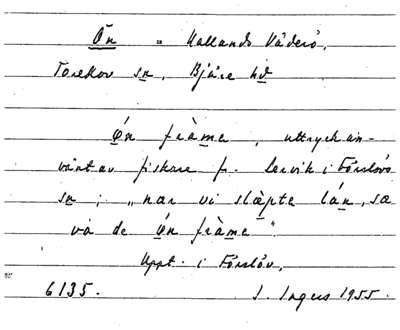 Ön = Hallands Väderö,
Torekov sn, Bjäre hd
Ön främe, uttryck an-
vänt av fiskare fr. Lervik i Förslövs
sn; „nær vi slæpte lán, sæ
vá de Ön främe".
Uppt. i Förslöv,
6135. I. Ingers 1955.